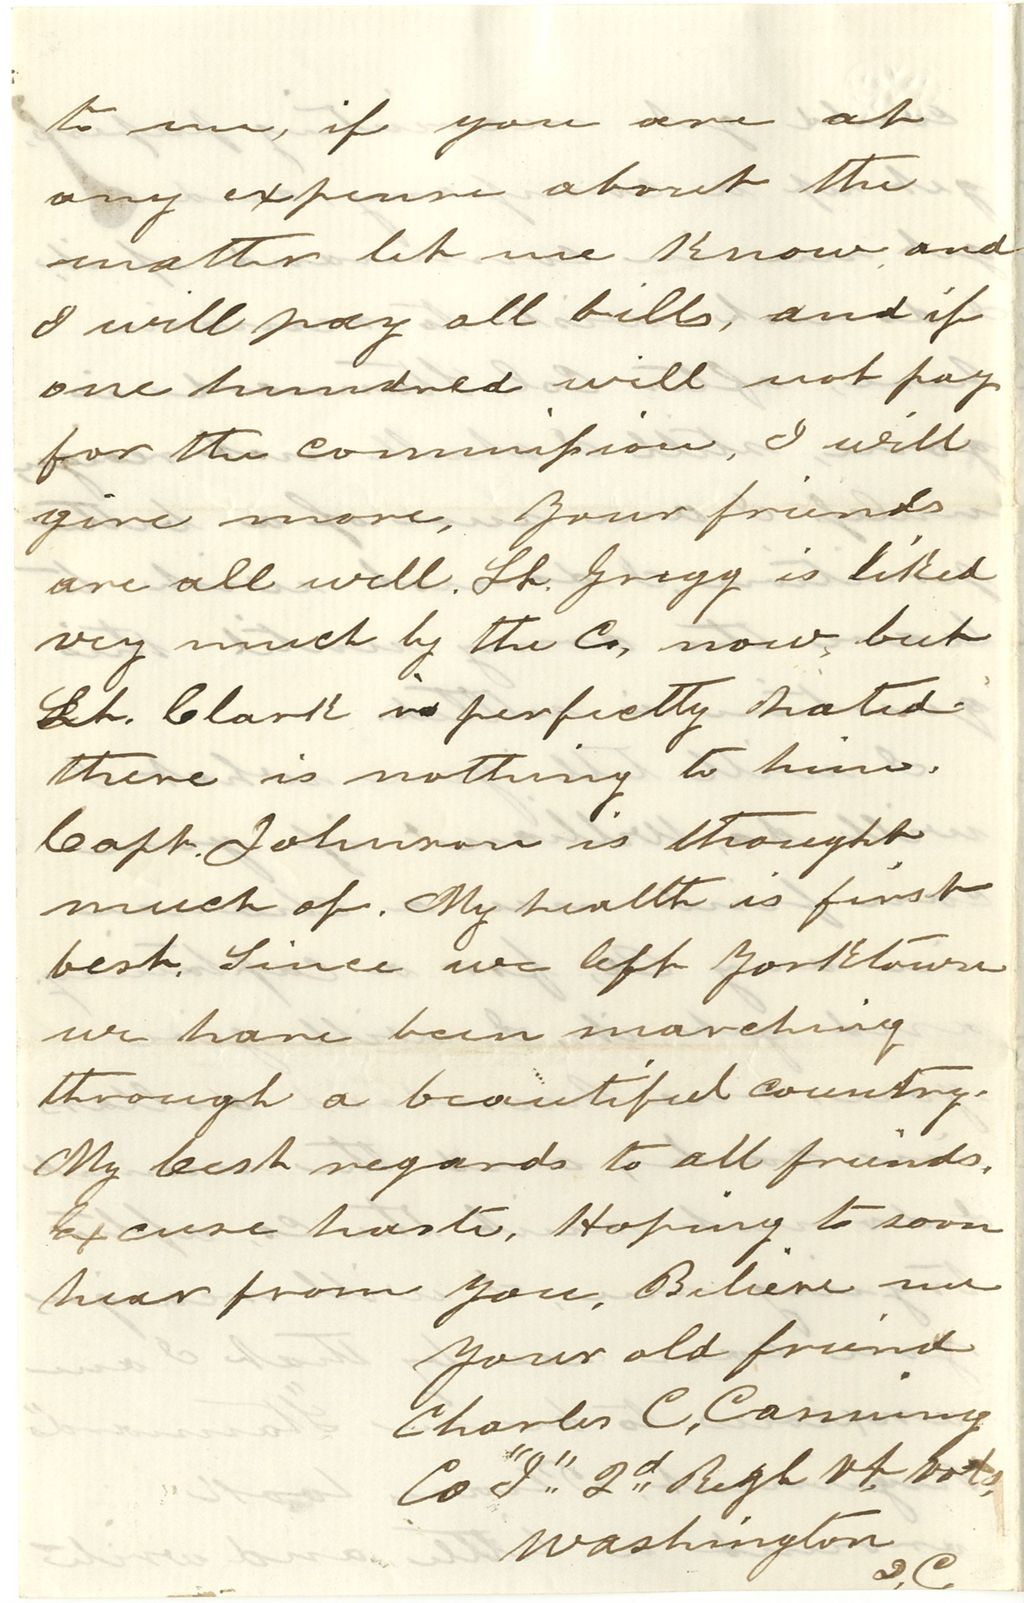 to me, if you are at
any expense about the
matter let me know and
I will pay all bills, and if
one hundred will not pay
for the commission, I will
give more, Your friends
are all well. Lt. Gregg is liked
very much by the Co, now, but
Lt. Clark is perfectly hated.
there is nothing to him.
Capt. Johnson is thought
much of. My health is first
best. Since we left Yorktown
we have been marching
through a beautiful country.
My best regards to all friends.
Excuse haste, Hoping to soon
hear from you, Believe me
Your old friend
Charles C. Canning
Co "I" 2d Regt Vt. Vols,
Washington
D.C.